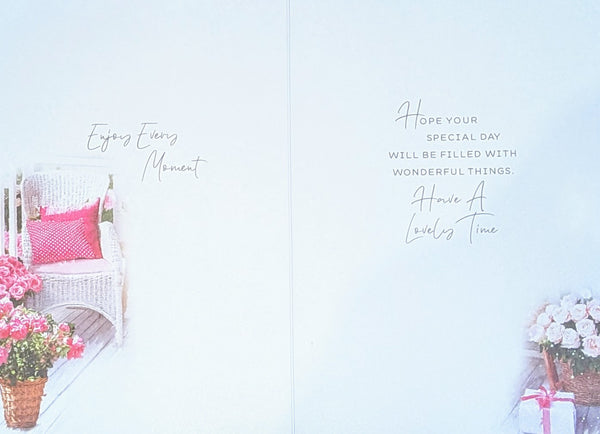 Enjoy Every
Moment
Hope your
special day
will be filled with
wonderful things.
Have A
Lovely Time